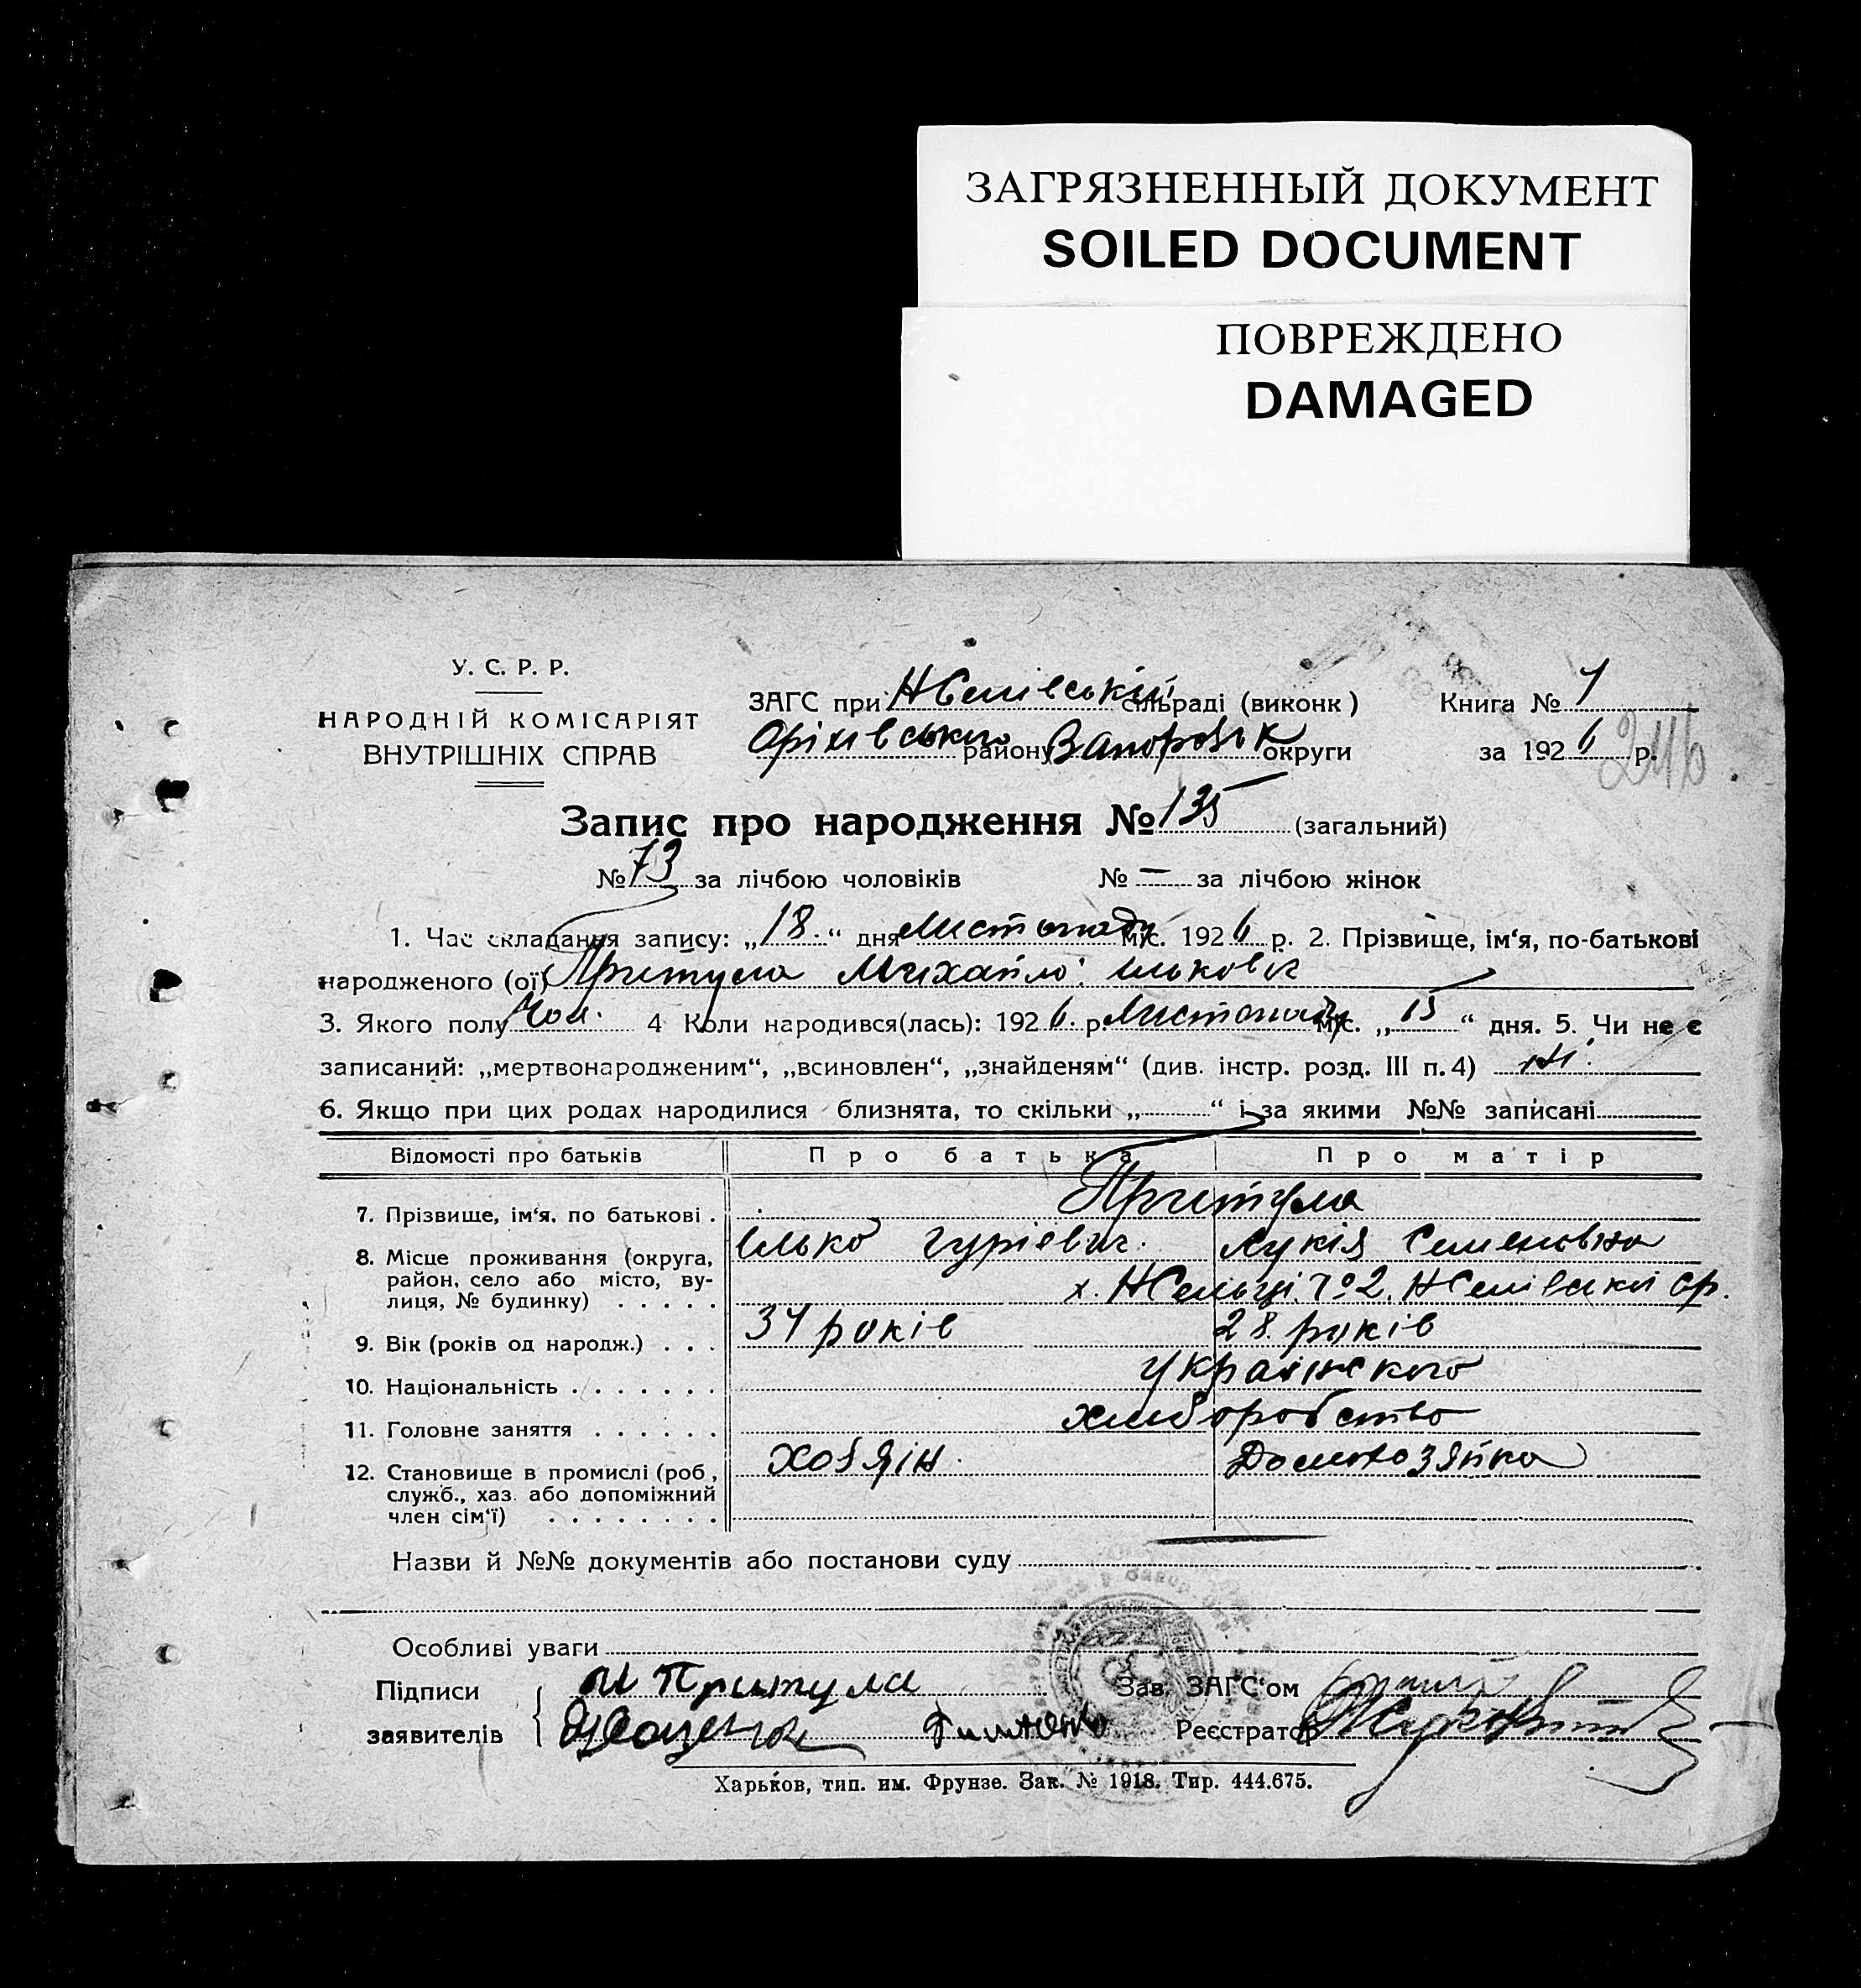 ЗАГРЯЗНЕННЫЙ ДОКУМЕНТ
SOILED DOCUMENT
ПОВРЕЖДЕНО
DAMAGED
У. С. Р. Р.
НАРОДНІЙ КОМІСАРІЯТ
ВНУТРІШНІХ СПРАВ
ЗАГС при сільраді (виконк)
Оріхівського району Запорізьк округи
Книга № 1
за 1926 р.
246
Запис про народження № 135 (загальний)
№ 73 за лічбою чоловіків № — за лічбою жінок
1. Час складання запису: „18.“ дня Листопаду м/с. 1926 р. 2. Прізвище, ім‘я, по-батькові
народженого (ої) Притула Михайло Ількович
3. Якого полу Чол. 4 Коли народився(лась): 1926. р. Листопаду м/с. „15“ дня. 5. Чи не є
записаний: „мертвонародженим“, „всиновлен“, „знайденям“ (див. інстр. розд. III п. 4) ні.
6. Якщо при цих родах народилися близнята, то скільки „ “ і за якими №№ записані
Відомості про батьків Про батька Про матір
7. Прізвище, ім‘я, по батькові . Притула
Ілько Гурієвич. Лукія Семеновна
8. Місце проживання (округа,
район, село або місто, ву-
лиця, № будинку) . . . . . х. №2. ср.
9. Вік (років од народж.) . . . 34 років 28. років
10. Національність . . . . . . . українського
11. Головне заняття . . . . . . хліборобство
12. Становище в промислі (роб, хозяін. Домохозяйка
служб., хаз. або допоміжний
член сім‘ї) . . . . . . . .
Назви й №№ документів або постанови суду
Особливі уваги
Підписи И Притула Зав. ЗАГС‘ом
заявителів Реєстратор
Харьков, тип. им. Фрунзе. Зак. № 1918. Тир. 444.675.